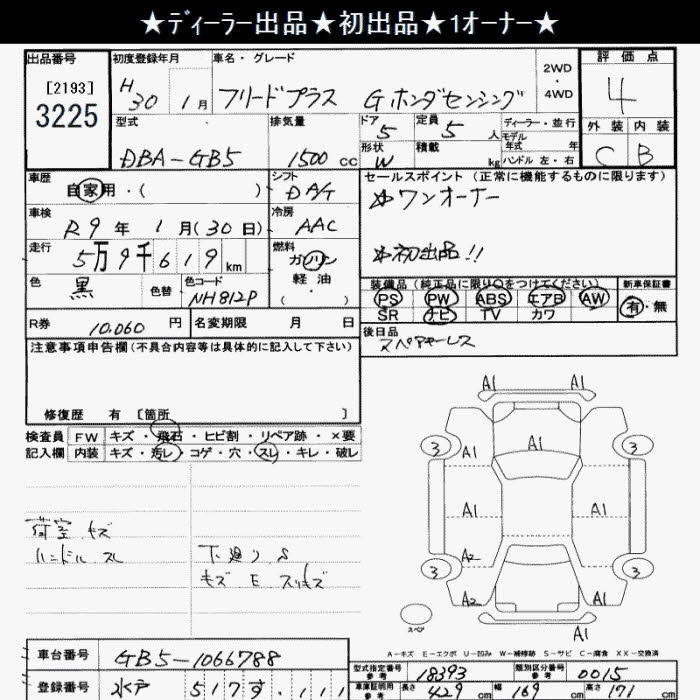 ★ディーラー出品★初出品★1オーナー★
出品番号 初度登録年月 車名・グレード 2WD・4WD 評価点
[2193]
3225
H30 1月 フリードプラス Gホンダセンシング 4
型式 排気量 ドア 5 定員 5人 ディーラー・並行 外装 内装
モデル年式 年
DBA-GB5 1500cc 形状 W 積載 kg ハンドル 左・右 C B
車歴 自家用・( ) シフト DA/T セールスポイント (正常に機能するものに限ります)
☆ワンオーナー
車検 R9年1月(30日) 冷房 AAC
走行 5万9千619km 燃料 ガソリン・軽油・( ) ☆初出品!!
色 黒 色替 色コード NH812P 装備品 (純正品に限り○をつけてください) 新車保証書
PS PW ABS エアB AW 有・無
SR ナビ TV カワ
R券 10,060円 名変期限 月 日 後日品
スペアキーレス
注意事項申告欄(不具合内容等は具体的に記入して下さい)
修復歴 有 [箇所 ]
検査員 FW キズ・飛石・ヒビ割・リペア跡・×要
記入欄 内装 キズ・汚レ・コゲ・穴・スレ・キレ・破レ
荷室 キズ
ハンドル スレ
下廻り S
キズ E スリキズ
A1 A1
3 A1 3
A1 A1
A1 A1
A2
3 3
A2 A1
A1
スペア
A-キズ E-エクボ U-凹み W-補修跡 S-サビ C-腐食 XX-交換済
車台番号 GB5-1066788 型式指定番号 参考 18393 類別区分番号 参考 0015
登録番号 水戸 517 す ・111 車庫証明用 参考 長さ 429cm 幅 169cm 高さ 171cm